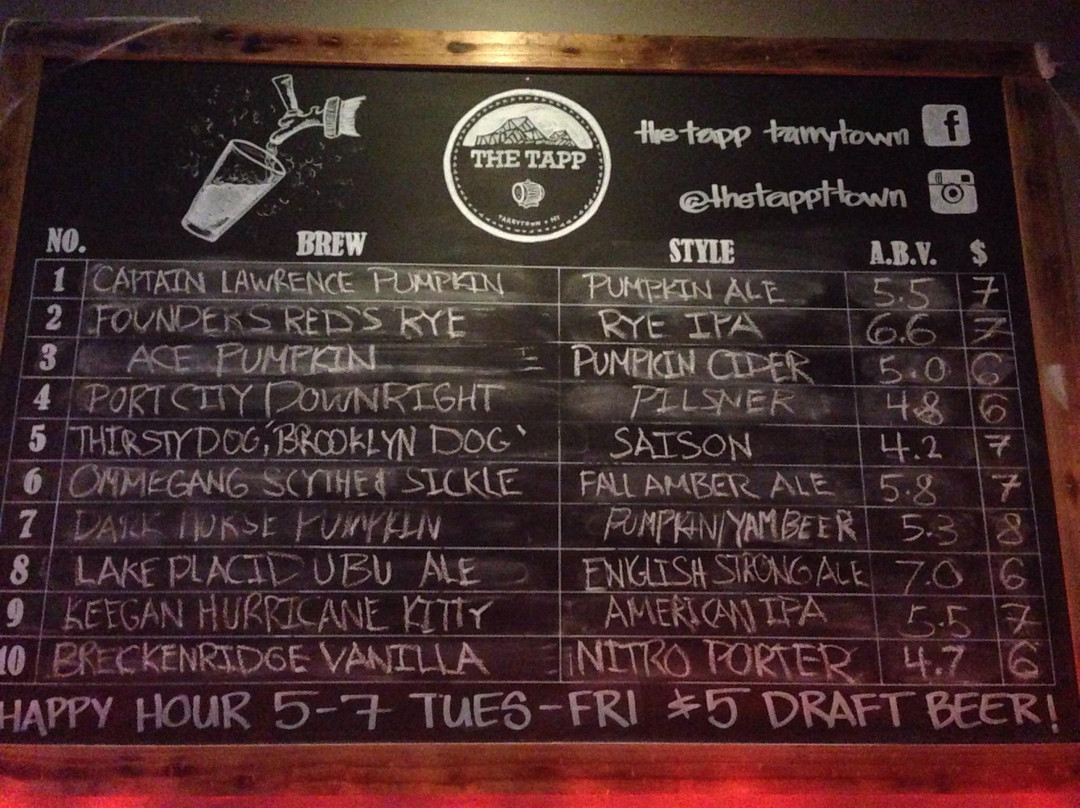 THE TAPP
TARRYTOWN • NY
the tapp tarrytown f
@thetappttown
NO. BREW STYLE A.B.V. $
1 CAPTAIN LAWRENCE PUMPKIN PUMPKIN ALE 5.5 7
2 FOUNDERS RED'S RYE RYE IPA 6.6 7
3 ACE PUMPKIN PUMPKIN CIDER 5.0 6
4 PORT CITY DOWNRIGHT PILSNER 4.8 6
5 THIRSTY DOG, 'BROOKLYN DOG' SAISON 4.2 7
6 OMMEGANG SCYTHE & SICKLE FALL AMBER ALE 5.8 7
7 DARK HORSE PUMPKIN PUMPKIN/YAM BEER 5.3 8
8 LAKE PLACID UBU ALE ENGLISH STRONG ALE 7.0 6
9 KEEGAN HURRICANE KITTY AMERICAN IPA 5.5 7
10 BRECKENRIDGE VANILLA NITRO PORTER 4.7 6
HAPPY HOUR 5-7 TUES-FRI $5 DRAFT BEER!